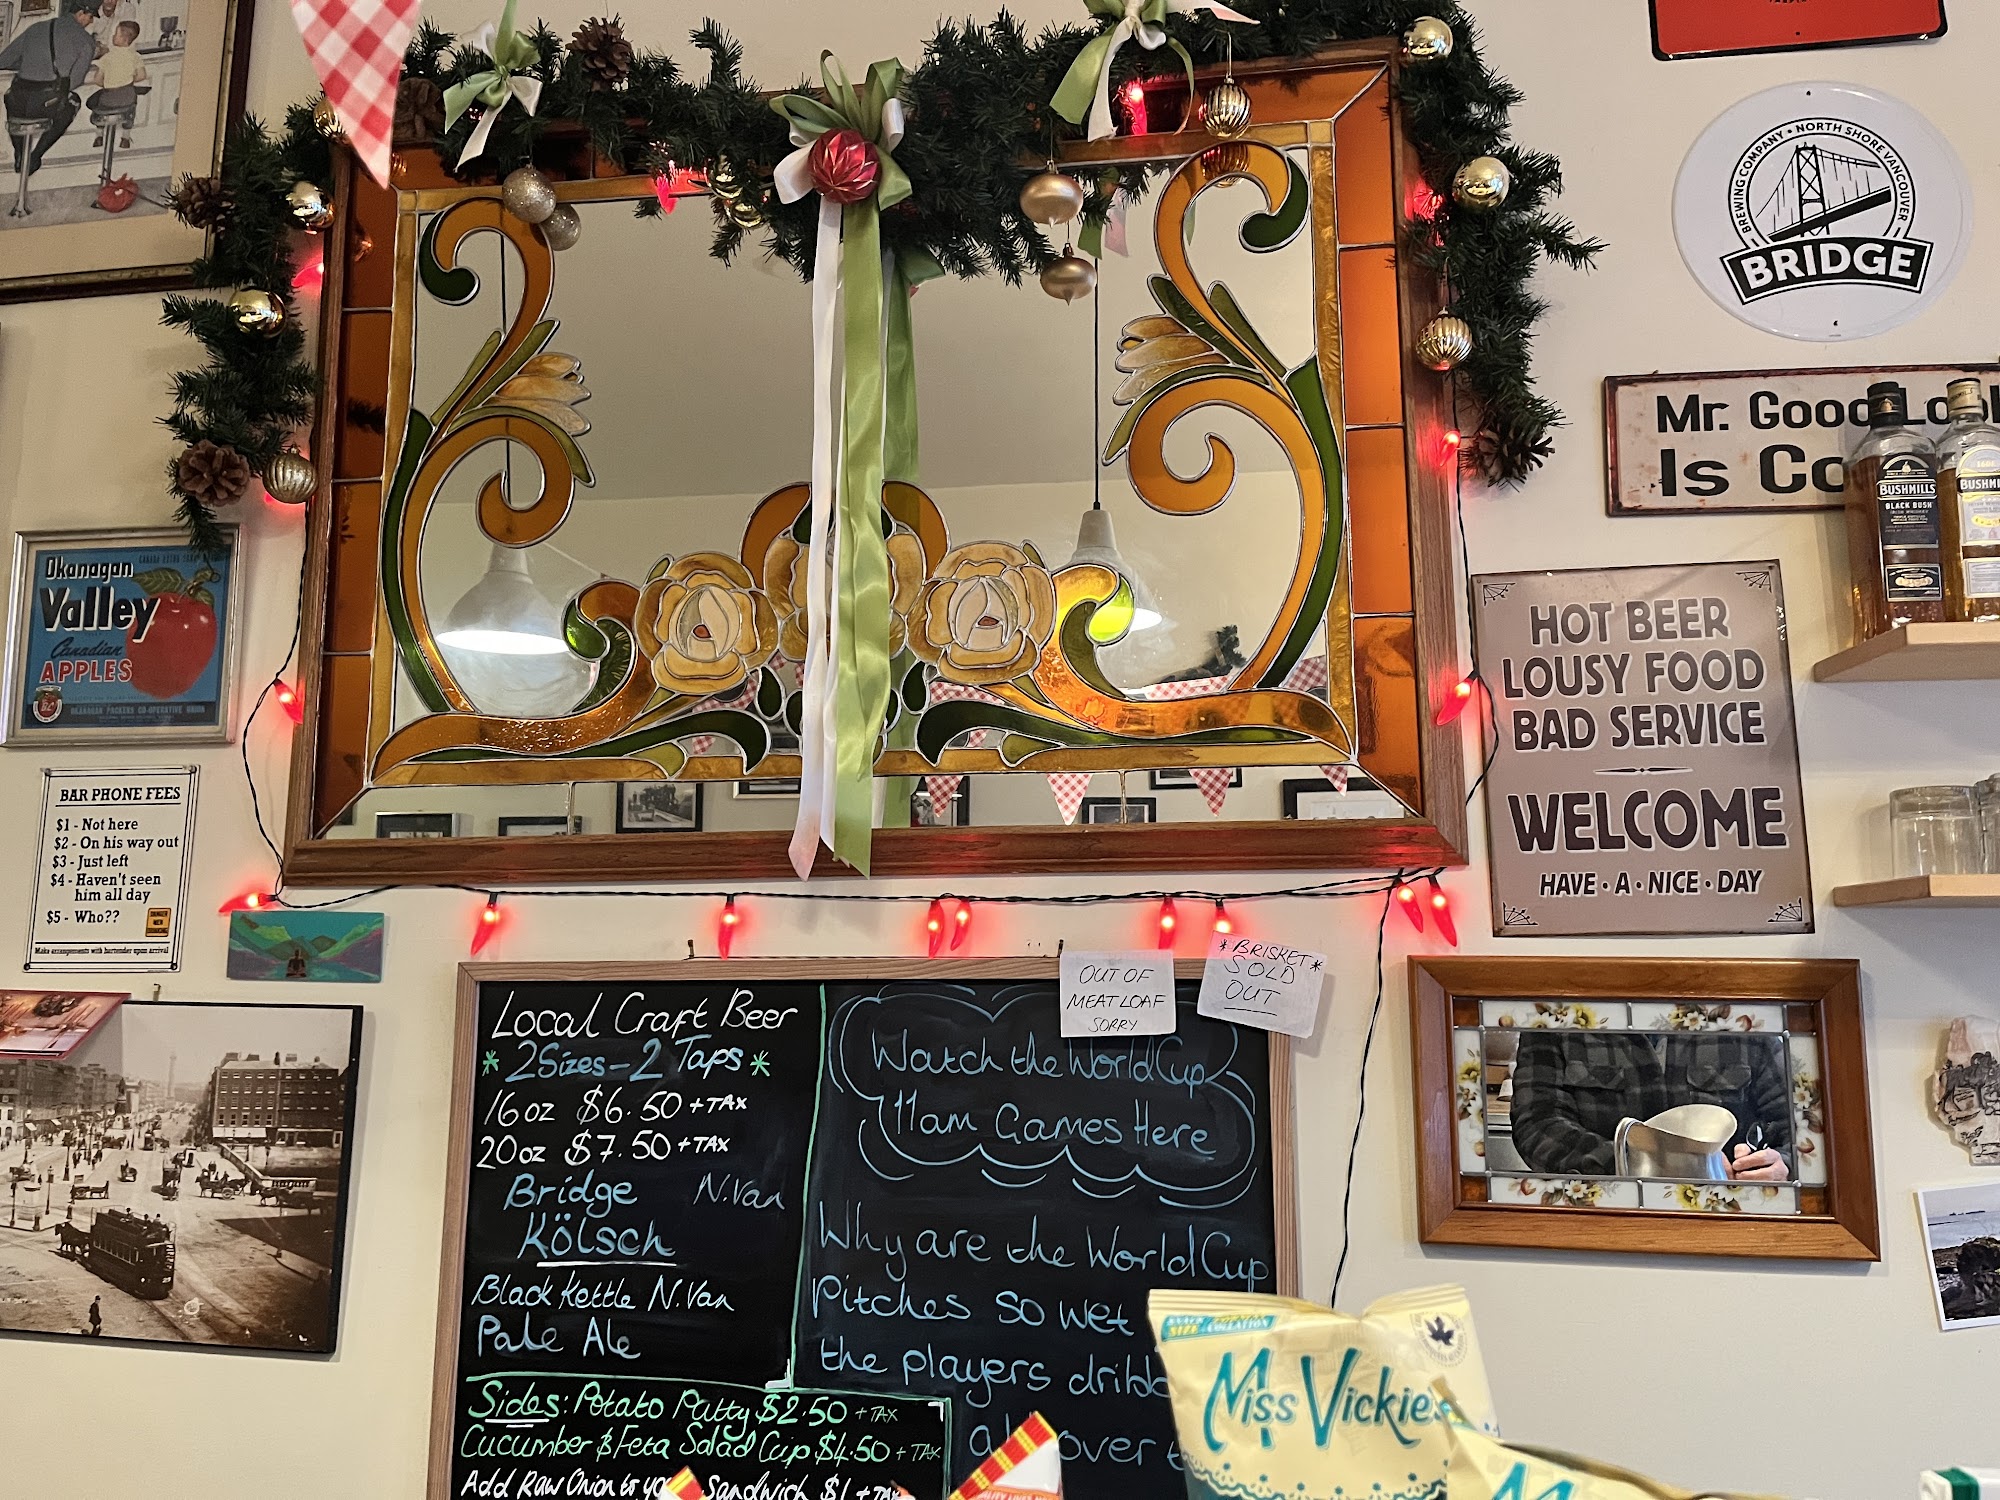 BREWING COMPANY • NORTH SHORE VANCOUVER
BRIDGE
Mr. Good
Is
BUSHMILLS
BLACK BUSH
Okanagan
Valley
Canadian
APPLES
OKANAGAN PACKERS CO-OPERATIVE UNION
HOT BEER
LOUSY FOOD
BAD SERVICE
WELCOME
HAVE • A • NICE • DAY
BAR PHONE FEES
$1 - Not here
$2 - On his way out
$3 - Just left
$4 - Haven't seen
him all day
$5 - Who??
Make arrangements with bartender upon arrival
OUT OF
MEATLOAF
SORRY
*BRISKET*
SOLD
OUT
Local Craft Beer
* 2 Sizes - 2 Taps *
16oz $6.50 + TAX
20oz $7.50 + TAX
Bridge N.Van
Kölsch
Black Kettle N.Van
Pale Ale
Sides: Potato Patty $2.50 + TAX
Cucumber & Feta Salad Cup $4.50 + TAX
Add Raw Onion to Sandwich $1 + TAX
Watch the World Cup
11am Games Here
Why are the World Cup
Pitches so wet
the players
over
Miss Vickie's